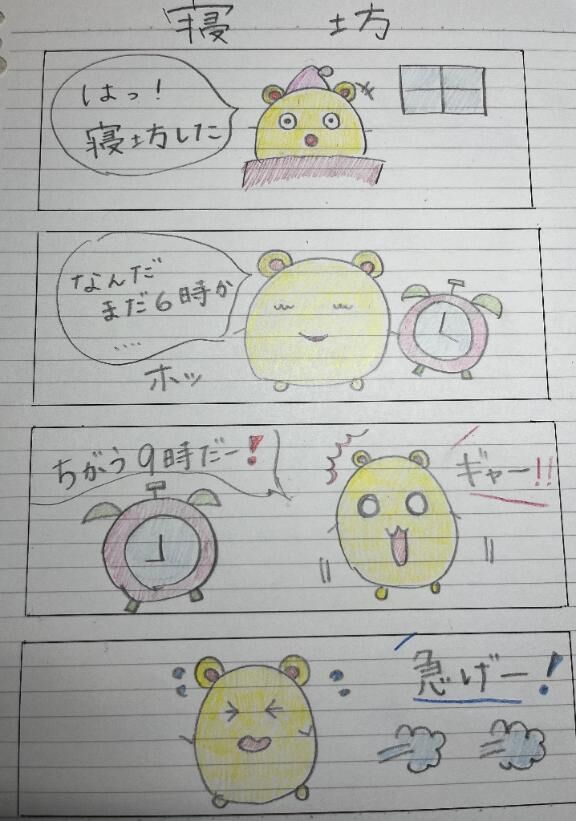 寝坊
はっ！
寝坊した
なんだ
まだ6時か
....
ホッ
ちがう9時だー！
ギャー!!
急げー！